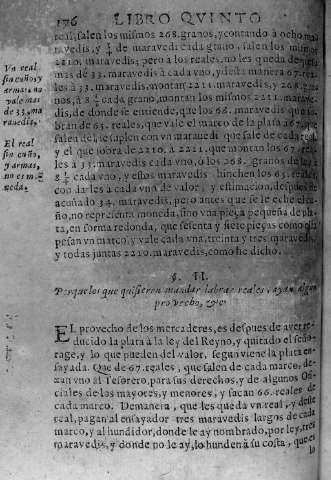 176 LIBRO QVINTO
real, salen los mismos 268. granos, y contando à ocho ma
ravedis, y ¼ de maravedi cada grano, salen los mismos
2210. maravedis; pero a los reales, no les queda de
mas de 33. maravedis à cada vno, y desta manera 67. rea
les à 33. maravedis, montan 2211. maravedis, y 268. gra
nos, à 8 ¼ cada grano, montan los mismos 2211. marave
dis, de donde se entiende, que los 68. maravedis que so
bran de 65. reales, que vale el marco de la plata
salen
y el que sobra de 2210. à 2211. que montan los 67. rea
les à 33. maravedis cada vno, ò los 268. granos de los à
8 ¼ cada vno, y estos maravedis hinchen los 65. reales,
con darles a cada vno de valor, y estimacion, despues de
acuñado 34. maravedis, pero antes que se le eche el cu
ño, no representa moneda, sino vna pieça pequeña de pla
ta, en forma redonda, que sesenta y siete pieças como ella
pesan vn marco, y vale cada vna, treinta y tres maravedis
y todas juntas 2210. maravedis, como he dicho.
Vn real
sin cuño, y
armas, no
vale mas
de 33. ma
ravedis.
El real
sin cuño,
y armas,
no es mo
neda.
§. II.
Porque los que quisieren mandar labrar reales, ayan algun
provecho, &c.
EL provecho de los mercaderes, es despues de aver re
ducido la plata à la ley del Reyno, y quitado el seño
rage, y lo que pueden del valor, segun viene la plata en
sayada. Que de 67. reales, que salen de cada marco, de
xan vno al Tesorero, para sus derechos, y de algunos Ofi
ciales de los mayores, y menores, y sacan 66. reales de
cada marco. Demanera, que les queda vn real, y deste
real, pagan al ensayador tres maravedis de cada largos
marco, y al hundidor, donde le ay nombrado, por ley, tres
maravedis, y donde no le ay, lo hunden à su costa, que es
lo